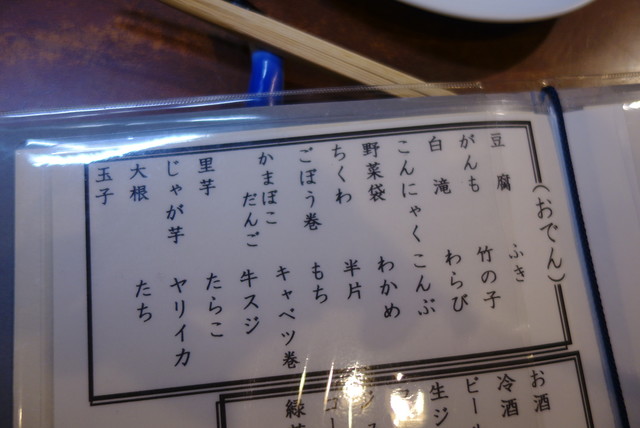 (おでん)
豆腐
がんも
白滝
こんにゃく
野菜袋
ちくわ
ごぼう巻
かまぼこ
だんご
里芋
じゃが芋
大根
玉子
ふき
竹の子
わらび
こんぶ
わかめ
半片
もち
キャベツ巻
牛スジ
たらこ
ヤリイカ
たち
お酒
冷酒
ビール
生ジ